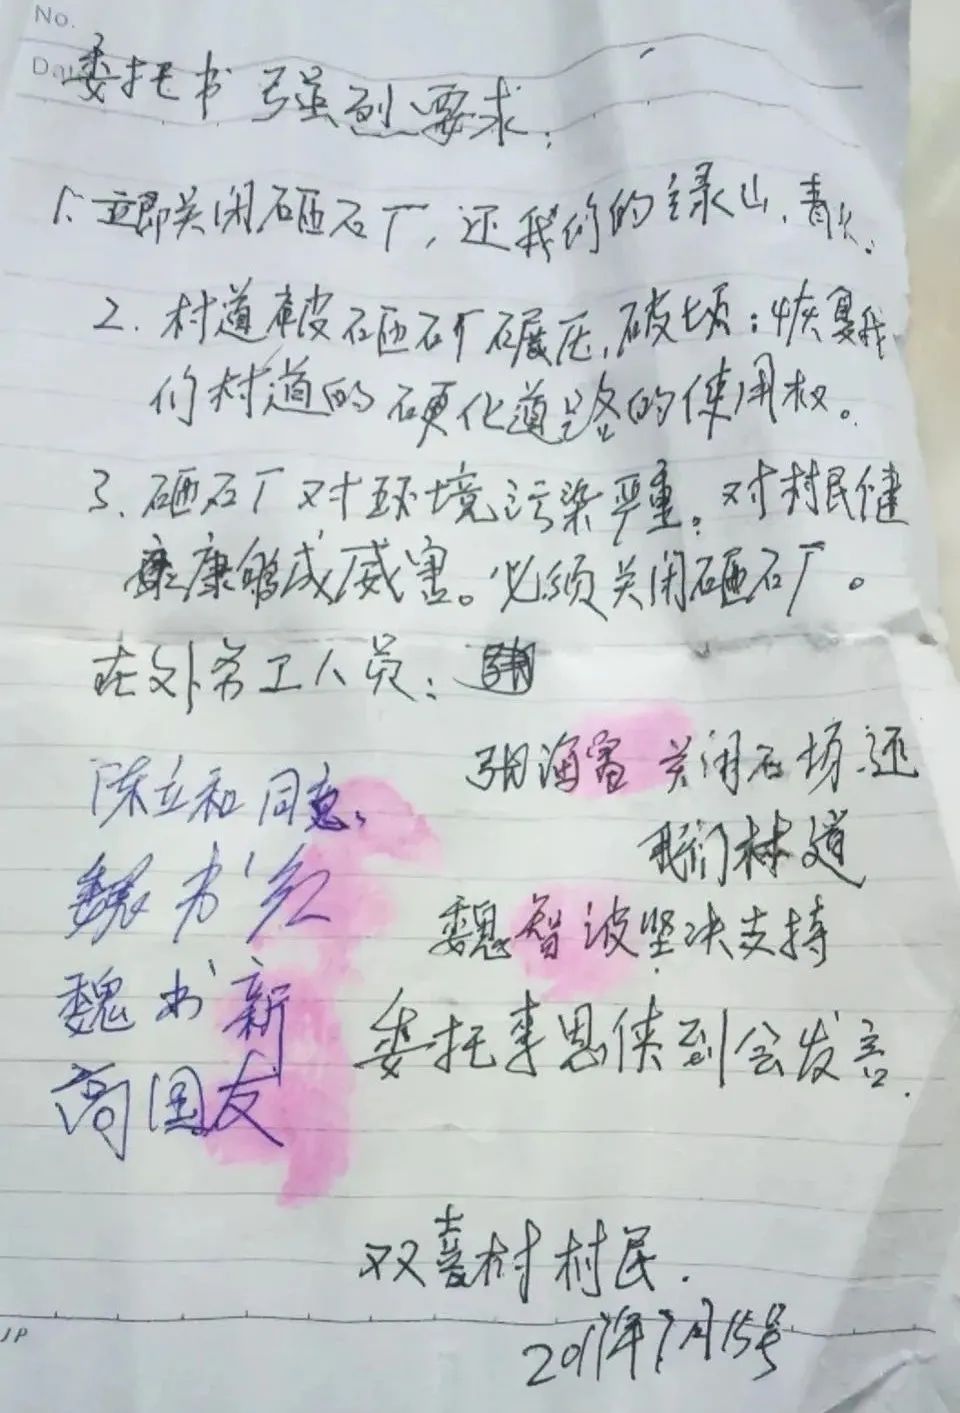 No.
Da
委托书 强烈要求:
1. 立即关闭砸石厂,还我们的绿山、青水.
2. 村道被砸石厂碾压,破坏;恢复我
们村道的硬化道路的使用权。
3. 砸石厂对环境污染严重。对村民健
康够成威害。必须关闭砸石厂。
在外务工人员:
陈立和同意、
魏书红
魏书新
商国友
张海 关闭石场.还
我们林道
魏智波坚决支持
委托李恩侠到会发言.
双喜村村民.
2017年7月15号
JP